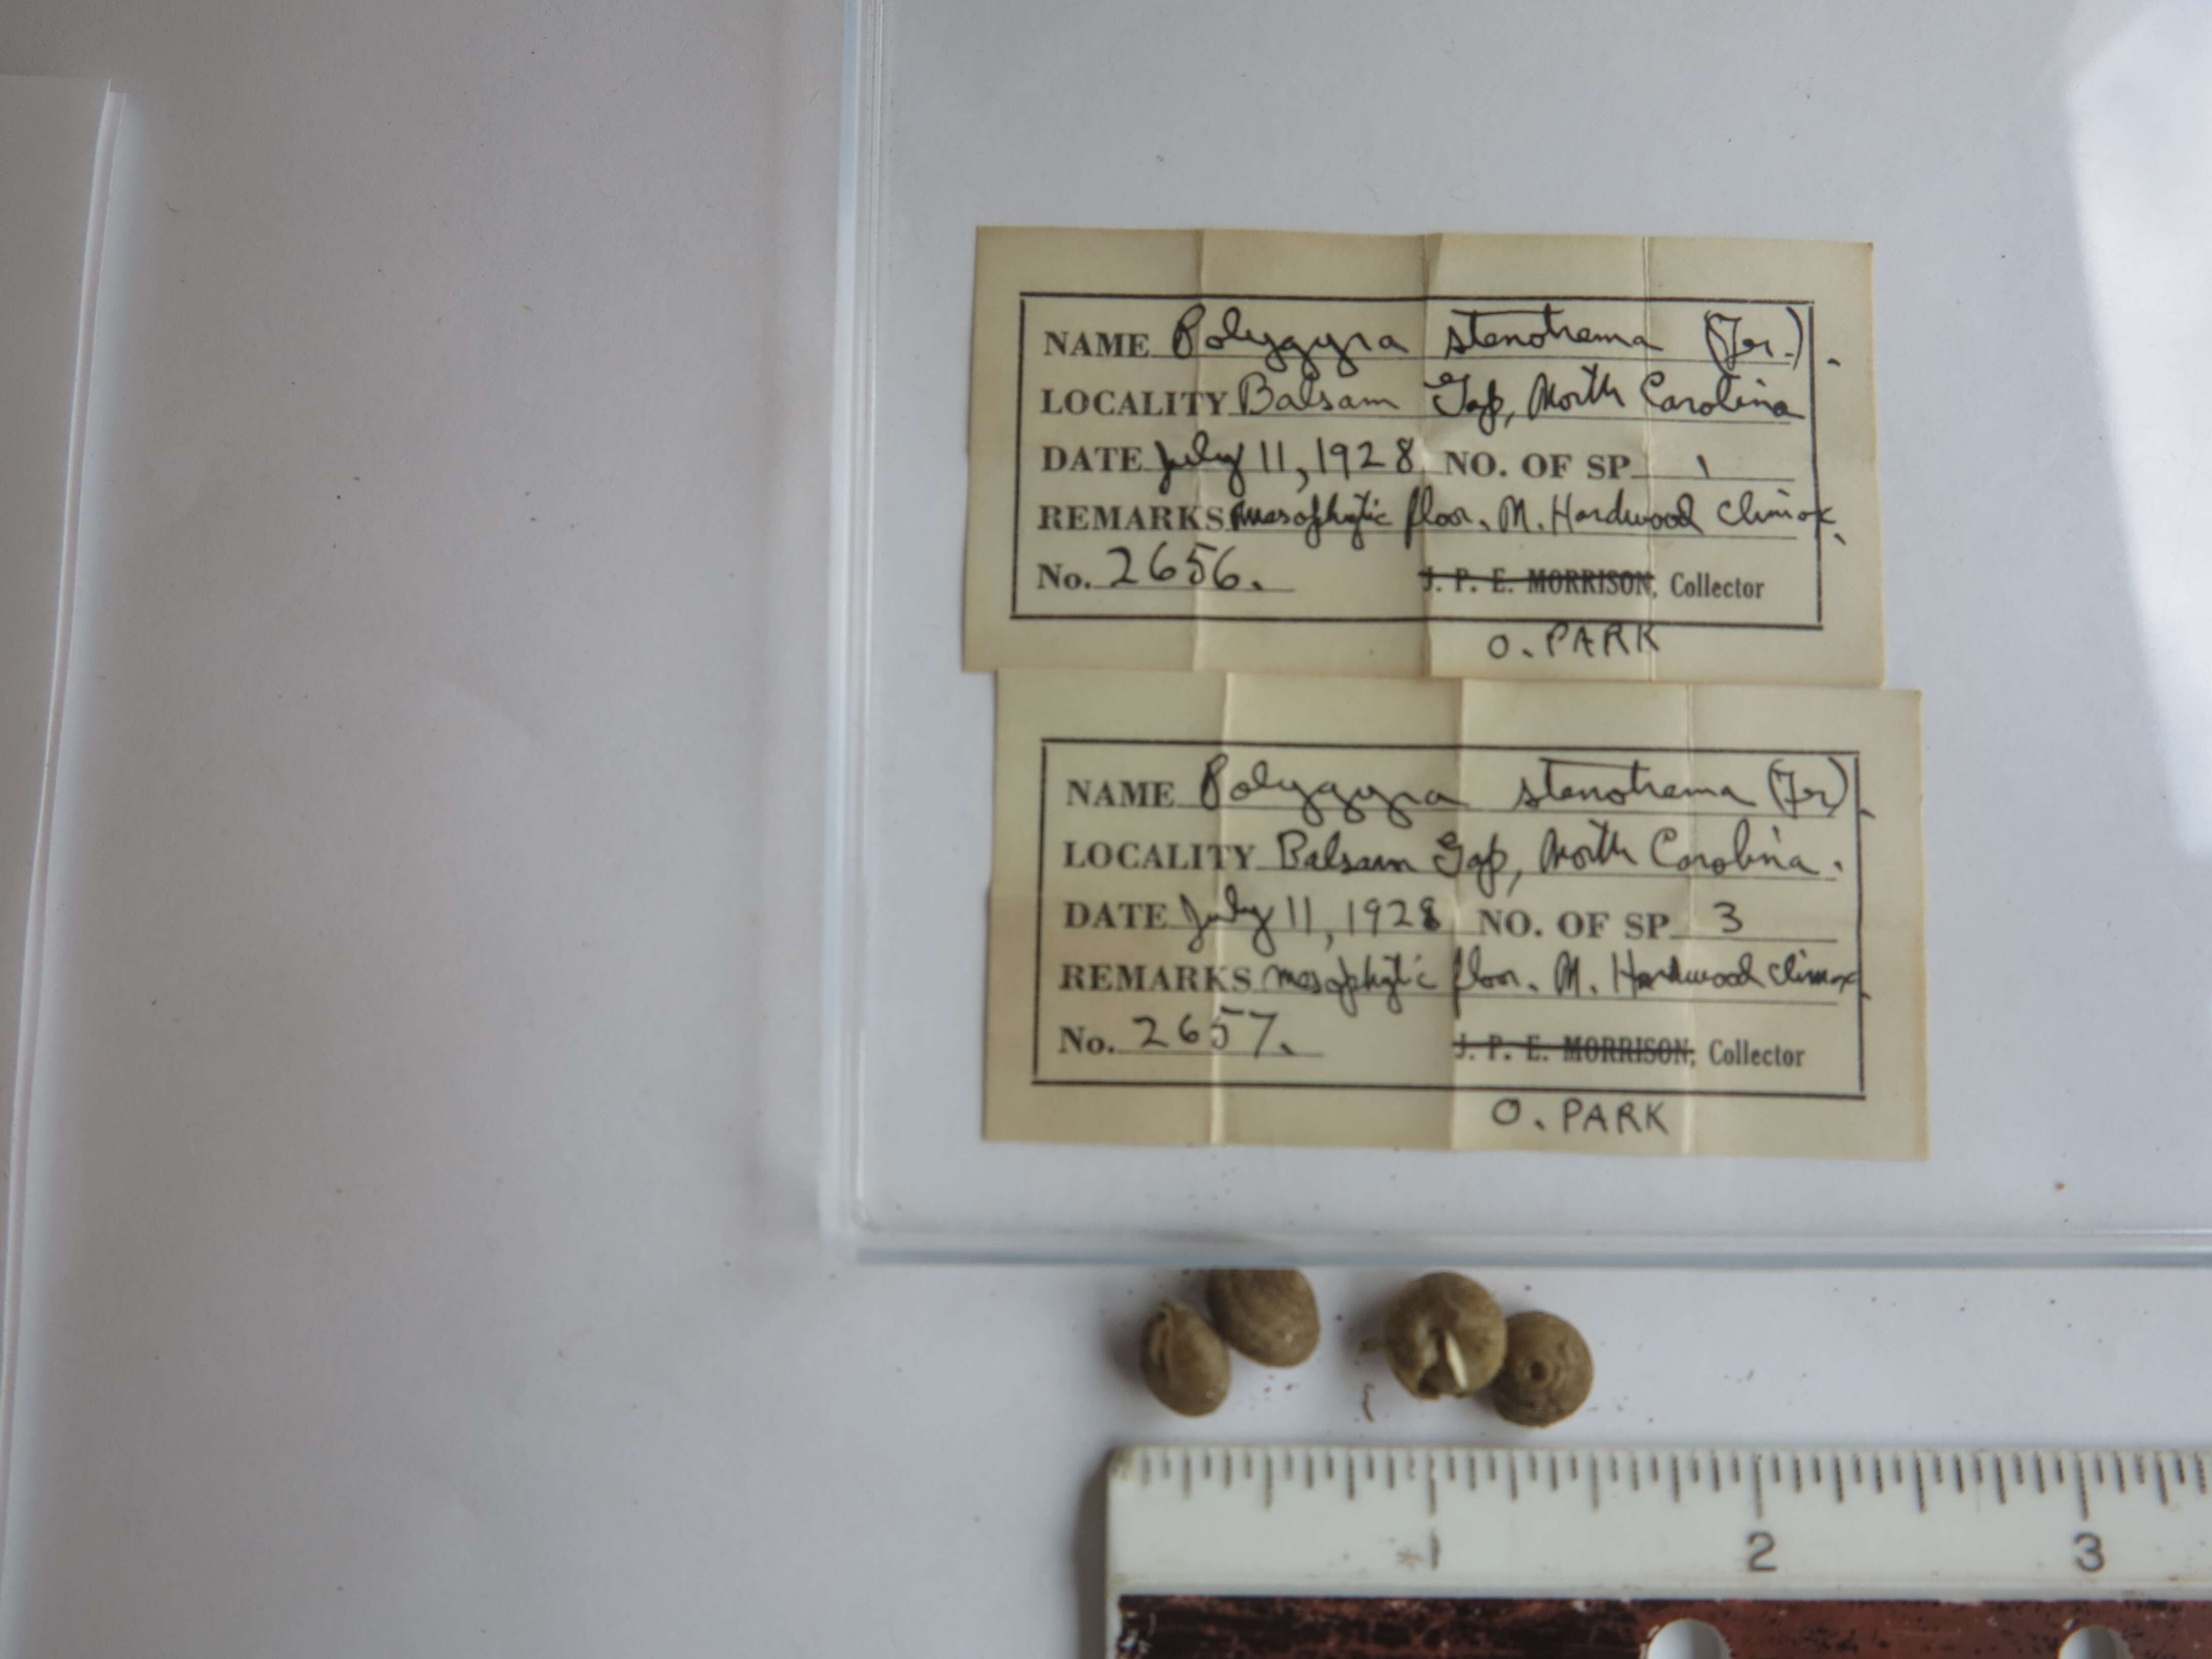 NAME Polygyra stenotrema (Fer.).
LOCALITY Balsam Gap, North Carolina
DATE July 11, 1928 NO. OF SP 1
REMARKS mesophytic floor. M. Hardwood climax.
No. 2656. J. P. E. MORRISON, Collector
O. PARK
NAME Polygyra stenotrema (Fer).
LOCALITY Balsam Gap, North Carolina.
DATE July 11, 1928 NO. OF SP 3
REMARKS mesophytic floor. M. Hardwood climax.
No. 2657. J. P. E. MORRISON, Collector
O. PARK
1 2 3